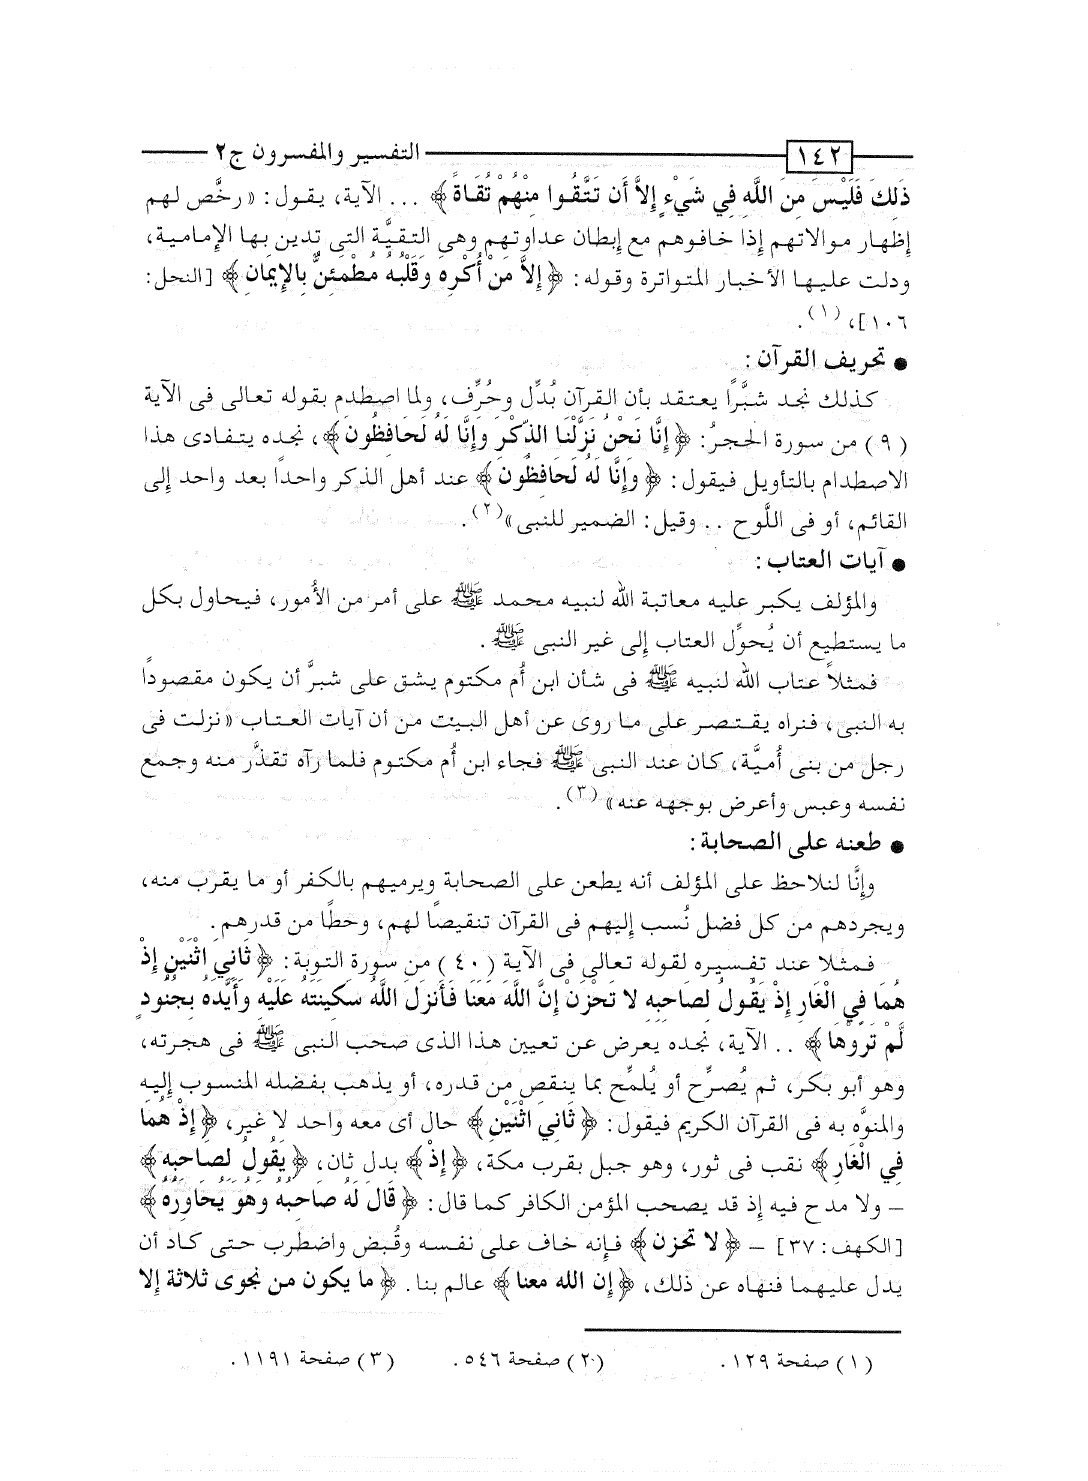 ١٤٢ التفسير والمفسرون ج٢
ذَلِكَ فَلَيْسَ مِنَ اللَّهِ فِي شَيْءٍ إِلاَّ أَن تَتَّقُوا مِنْهُمْ تُقَاةً﴾ ... الآية، يقول: «رخَّص لهم
إظهار موالاتهم إذا خافوهم مع إبطان عداوتهم وهى التقيَّة التى تدين بها الإمامية،
ودلت عليها الأخبار المتواترة وقوله: ﴿إِلاَّ مَنْ أُكْرِهَ وَقَلْبُهُ مُطْمَئِنٌّ بِالإِيمَانِ﴾ [النحل:
١٠٦]، (١).
● تحريف القرآن:
كذلك نجد شبَّرًا يعتقد بأن القرآن بُدِّل وحُرِّف، ولما اصطدم بقوله تعالى فى الآية
(٩) من سورة الحجر: ﴿إِنَّا نَحْنُ نَزَّلْنَا الذِّكْرَ وَإِنَّا لَهُ لَحَافِظُونَ﴾، نجده يتفادى هذا
الاصطدام بالتأويل فيقول: ﴿وَإِنَّا لَهُ لَحَافِظُونَ﴾ عند أهل الذكر واحدًا بعد واحد إلى
القائم، أو فى اللَّوح .. وقيل: الضمير للنبى»(٢).
● آيات العتاب:
والمؤلف يكبر عليه معاتبة الله لنبيه محمد ﷺ على أمر من الأُمور، فيحاول بكل
ما يستطيع أن يُحوِّل العتاب إلى غير النبى ﷺ.
فمثلاً عتاب الله لنبيه ﷺ فى شأن ابن أُم مكتوم يشق على شبرَّ أن يكون مقصودًا
به النبى، فنراه يقتصر على ما روى عن أهل البيت من أن آيات العتاب «نزلت فى
رجل من بنى أُميَّة، كان عند النبى ﷺ فجاء ابن أُم مكتوم فلما رآه تقذَّر منه وجمع
نفسه وعبس وأعرض بوجهه عنه»(٣).
● طعنه على الصحابة:
وإنَّا لنلاحظ على المؤلف أنه يطعن على الصحابة ويرميهم بالكفر أو ما يقرب منه،
ويجردهم من كل فضل نُسب إليهم فى القرآن تنقيصًا لهم، وحطًا من قدرهم.
فمثلا عند تفسيره لقوله تعالى فى الآية (٤٠) من سورة التوبة: ﴿ثَانِيَ اثْنَيْنِ إِذْ
هُمَا فِي الْغَارِ إِذْ يَقُولُ لِصَاحِبِهِ لا تَحْزَنْ إِنَّ اللَّهَ مَعَنَا فَأَنزَلَ اللَّهُ سَكِينَتَهُ عَلَيْهِ وَأَيَّدَهُ بِجُنُودٍ
لَّمْ تَرَوْهَا﴾ .. الآية، نجده يعرض عن تعيين هذا الذى صحب النبى ﷺ فى هجرته،
وهو أبو بكر، ثم يُصرِّح أو يُلمِّح بما ينقص من قدره، أو يذهب بفضله المنسوب إليه
والمنوَّه به فى القرآن الكريم فيقول: ﴿ثَانِيَ اثْنَيْنِ﴾ حال أى معه واحد لا غير، ﴿إِذْ هُمَا
فِي الْغَارِ﴾ نقب فى ثور، وهو جبل بقرب مكة، ﴿إِذْ﴾ بدل ثان، ﴿يَقُولُ لِصَاحِبِهِ﴾
- ولا مدح فيه إذ قد يصحب المؤمن الكافر كما قال: ﴿قَالَ لَهُ صَاحِبُهُ وَهُوَ يُحَاوِرُهُ﴾
[الكهف: ٣٧] - ﴿لا تحزن﴾ فإنه خاف على نفسه وقُبض واضطرب حتى كاد أن
يدل عليهما فنهاه عن ذلك، ﴿إن الله معنا﴾ عالم بنا. ﴿ما يكون من نجوى ثلاثة إلا
(١) صفحة ١٢٩. (٢) صفحة ٥٤٦. (٣) صفحة ١١٩١.